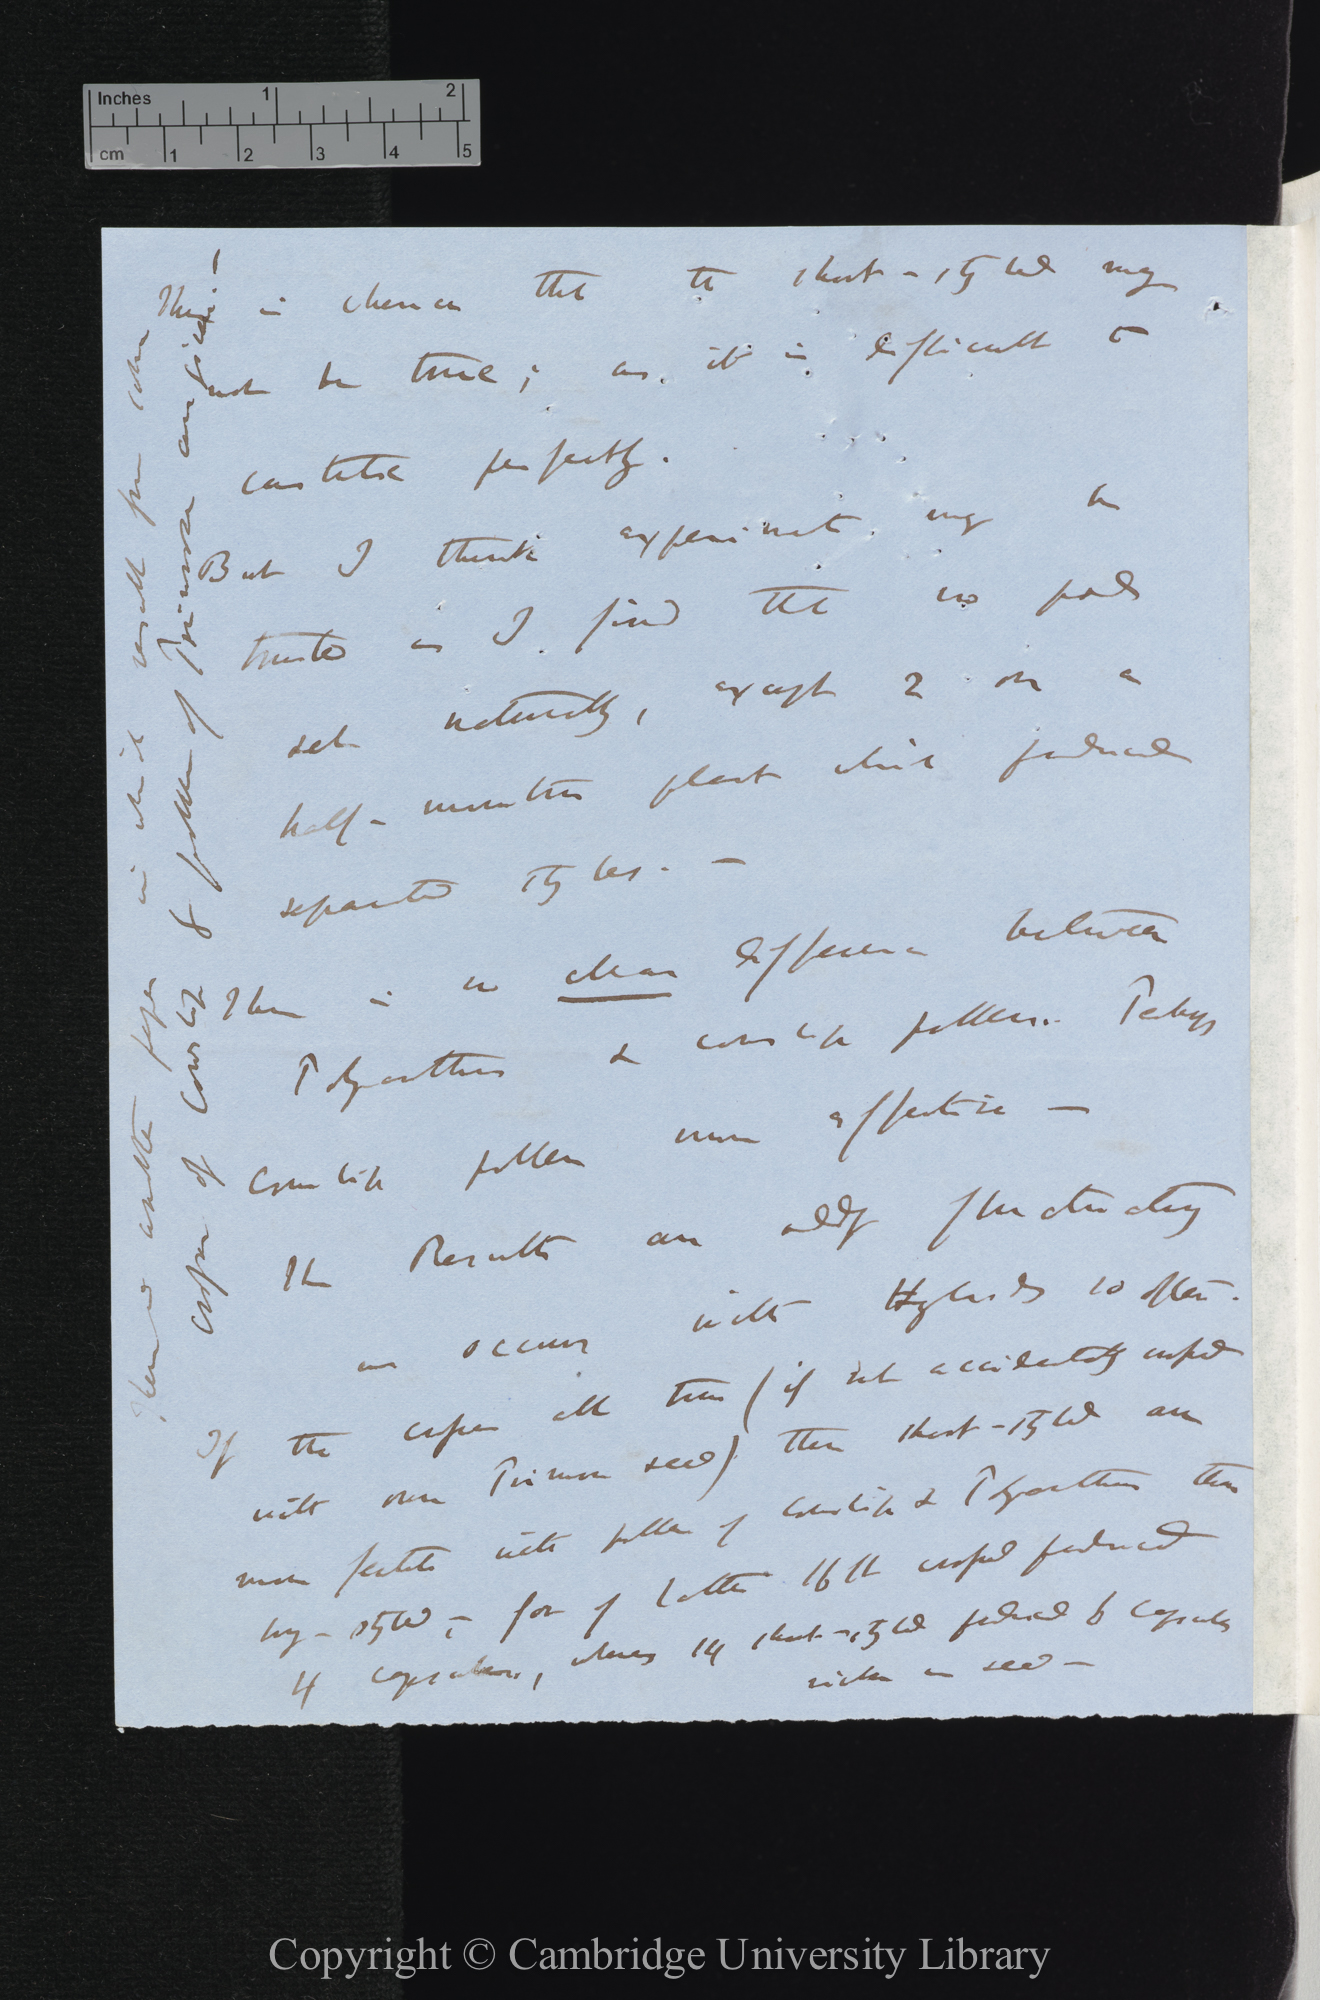 Inches 1 2
cm 1 2 3 4 5
There is chance that the short-styled may
not be true; as it is difficult to
castrate perfectly.
But I think experiment may be
trusted as I find that no pods
set naturally, except 2 on a
half-monstrous plant which produced
separate styles. —
There is no clear difference between
Polyanthus & cowslip pollen. Perhaps
Cowslip pollen more effective —
The Results are oddly fluctuating
as occurs with Hybrids so often.
If the crosses all true (if not accidentally crossed
with own Primrose seed) then short-styled are
more fertile with pollen of Cowslip & Polyanthus than
long-styled; for of latter 16 fl crossed produced
4 capsules, whereas 14 short-styled produced 6 capsules
richer in seed —
another paper in which result from
crosses of Cowslip & pollen of Primrose are given!
Copyright © Cambridge University Library